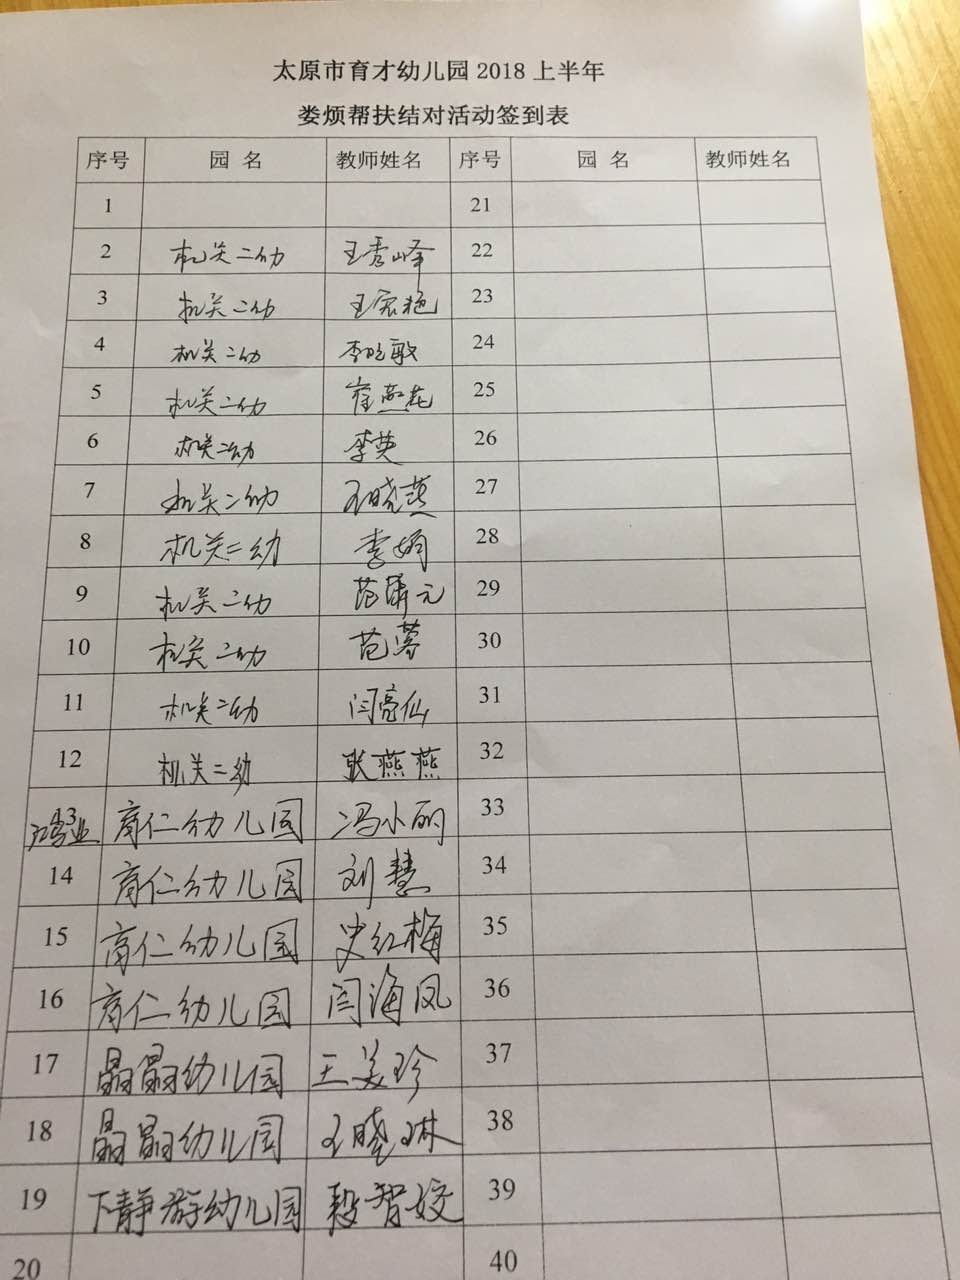 太原市育才幼儿园2018上半年
娄烦帮扶结对活动签到表
序号 园 名 教师姓名 序号 园 名 教师姓名
1 21
2 机关二幼 王秀峰 22
3 机关二幼 王宏艳 23
4 机关二幼 李晓敏 24
5 机关二幼 崔燕花 25
6 机关二幼 李英 26
7 机关二幼 王晓燕 27
8 机关二幼 李娟 28
9 机关二幼 元 29
10 机关二幼 范蓉 30
11 机关二幼 闫亮仙 31
12 机关二幼 张燕燕 32
13 育仁幼儿园 冯小丽 33
14 育仁幼儿园 刘慧 34
15 育仁幼儿园 史红梅 35
16 育仁幼儿园 闫海凤 36
17 晶晶幼儿园 王美珍 37
18 晶晶幼儿园 王晓琳 38
19 下静游幼儿园 段智姣 39
20 40